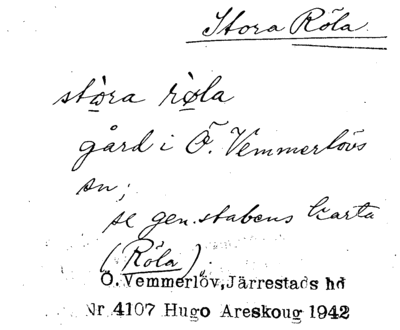 Stora Röla.
stòra rø̀la
gård i Ö. Vemmerlövs
sn;
se gen.stabens karta
(Röla).
Ö.Vemmerlöv,Järrestads hd
Nr 4107 Hugo Areskoug 1942